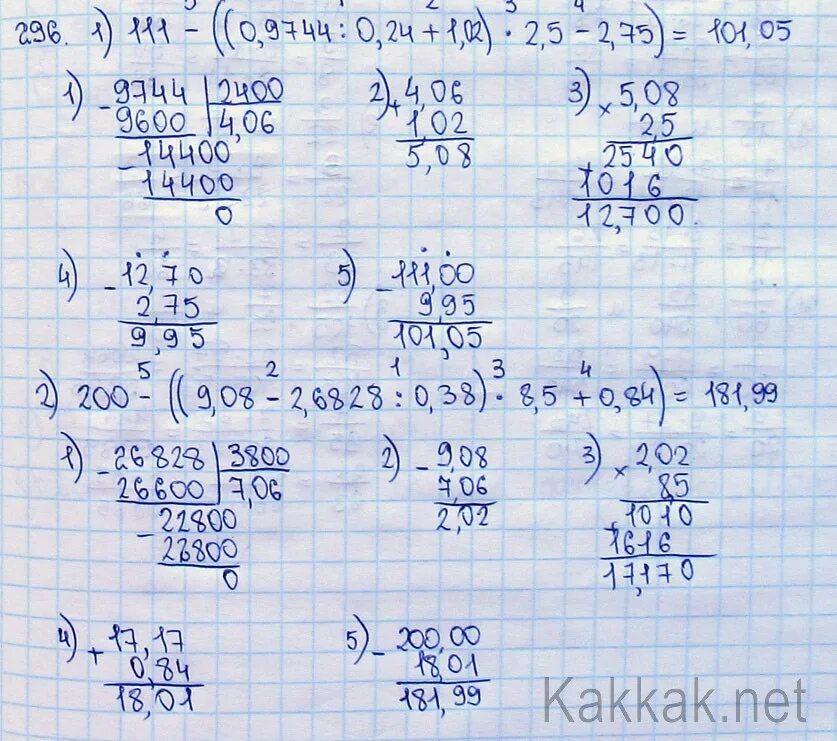 5 1 2 3 4
296. 1) 111 - ((0,9744 : 0,24 + 1,02) · 2,5 - 2,75) = 101,05
1) - 9744 | 2400
9600 | 4,06
- 14400
14400
0
2) + 4,06
1,02
5,08
3) × 5,08
2,5
+ 2540
1016
12,700
4) - 12,70
2,75
9,95
5) - 111,00
9,95
101,05
5 2 1 3 4
2) 200 - ((9,08 - 2,6828 : 0,38) · 8,5 + 0,84) = 181,99
1) - 26828 | 3800
26600 | 7,06
- 22800
22800
0
2) - 9,08
7,06
2,02
3) × 2,02
8,5
+ 1010
1616
17,170
4) + 17,17
0,84
18,01
5) - 200,00
18,01
181,99
Kakkak.net